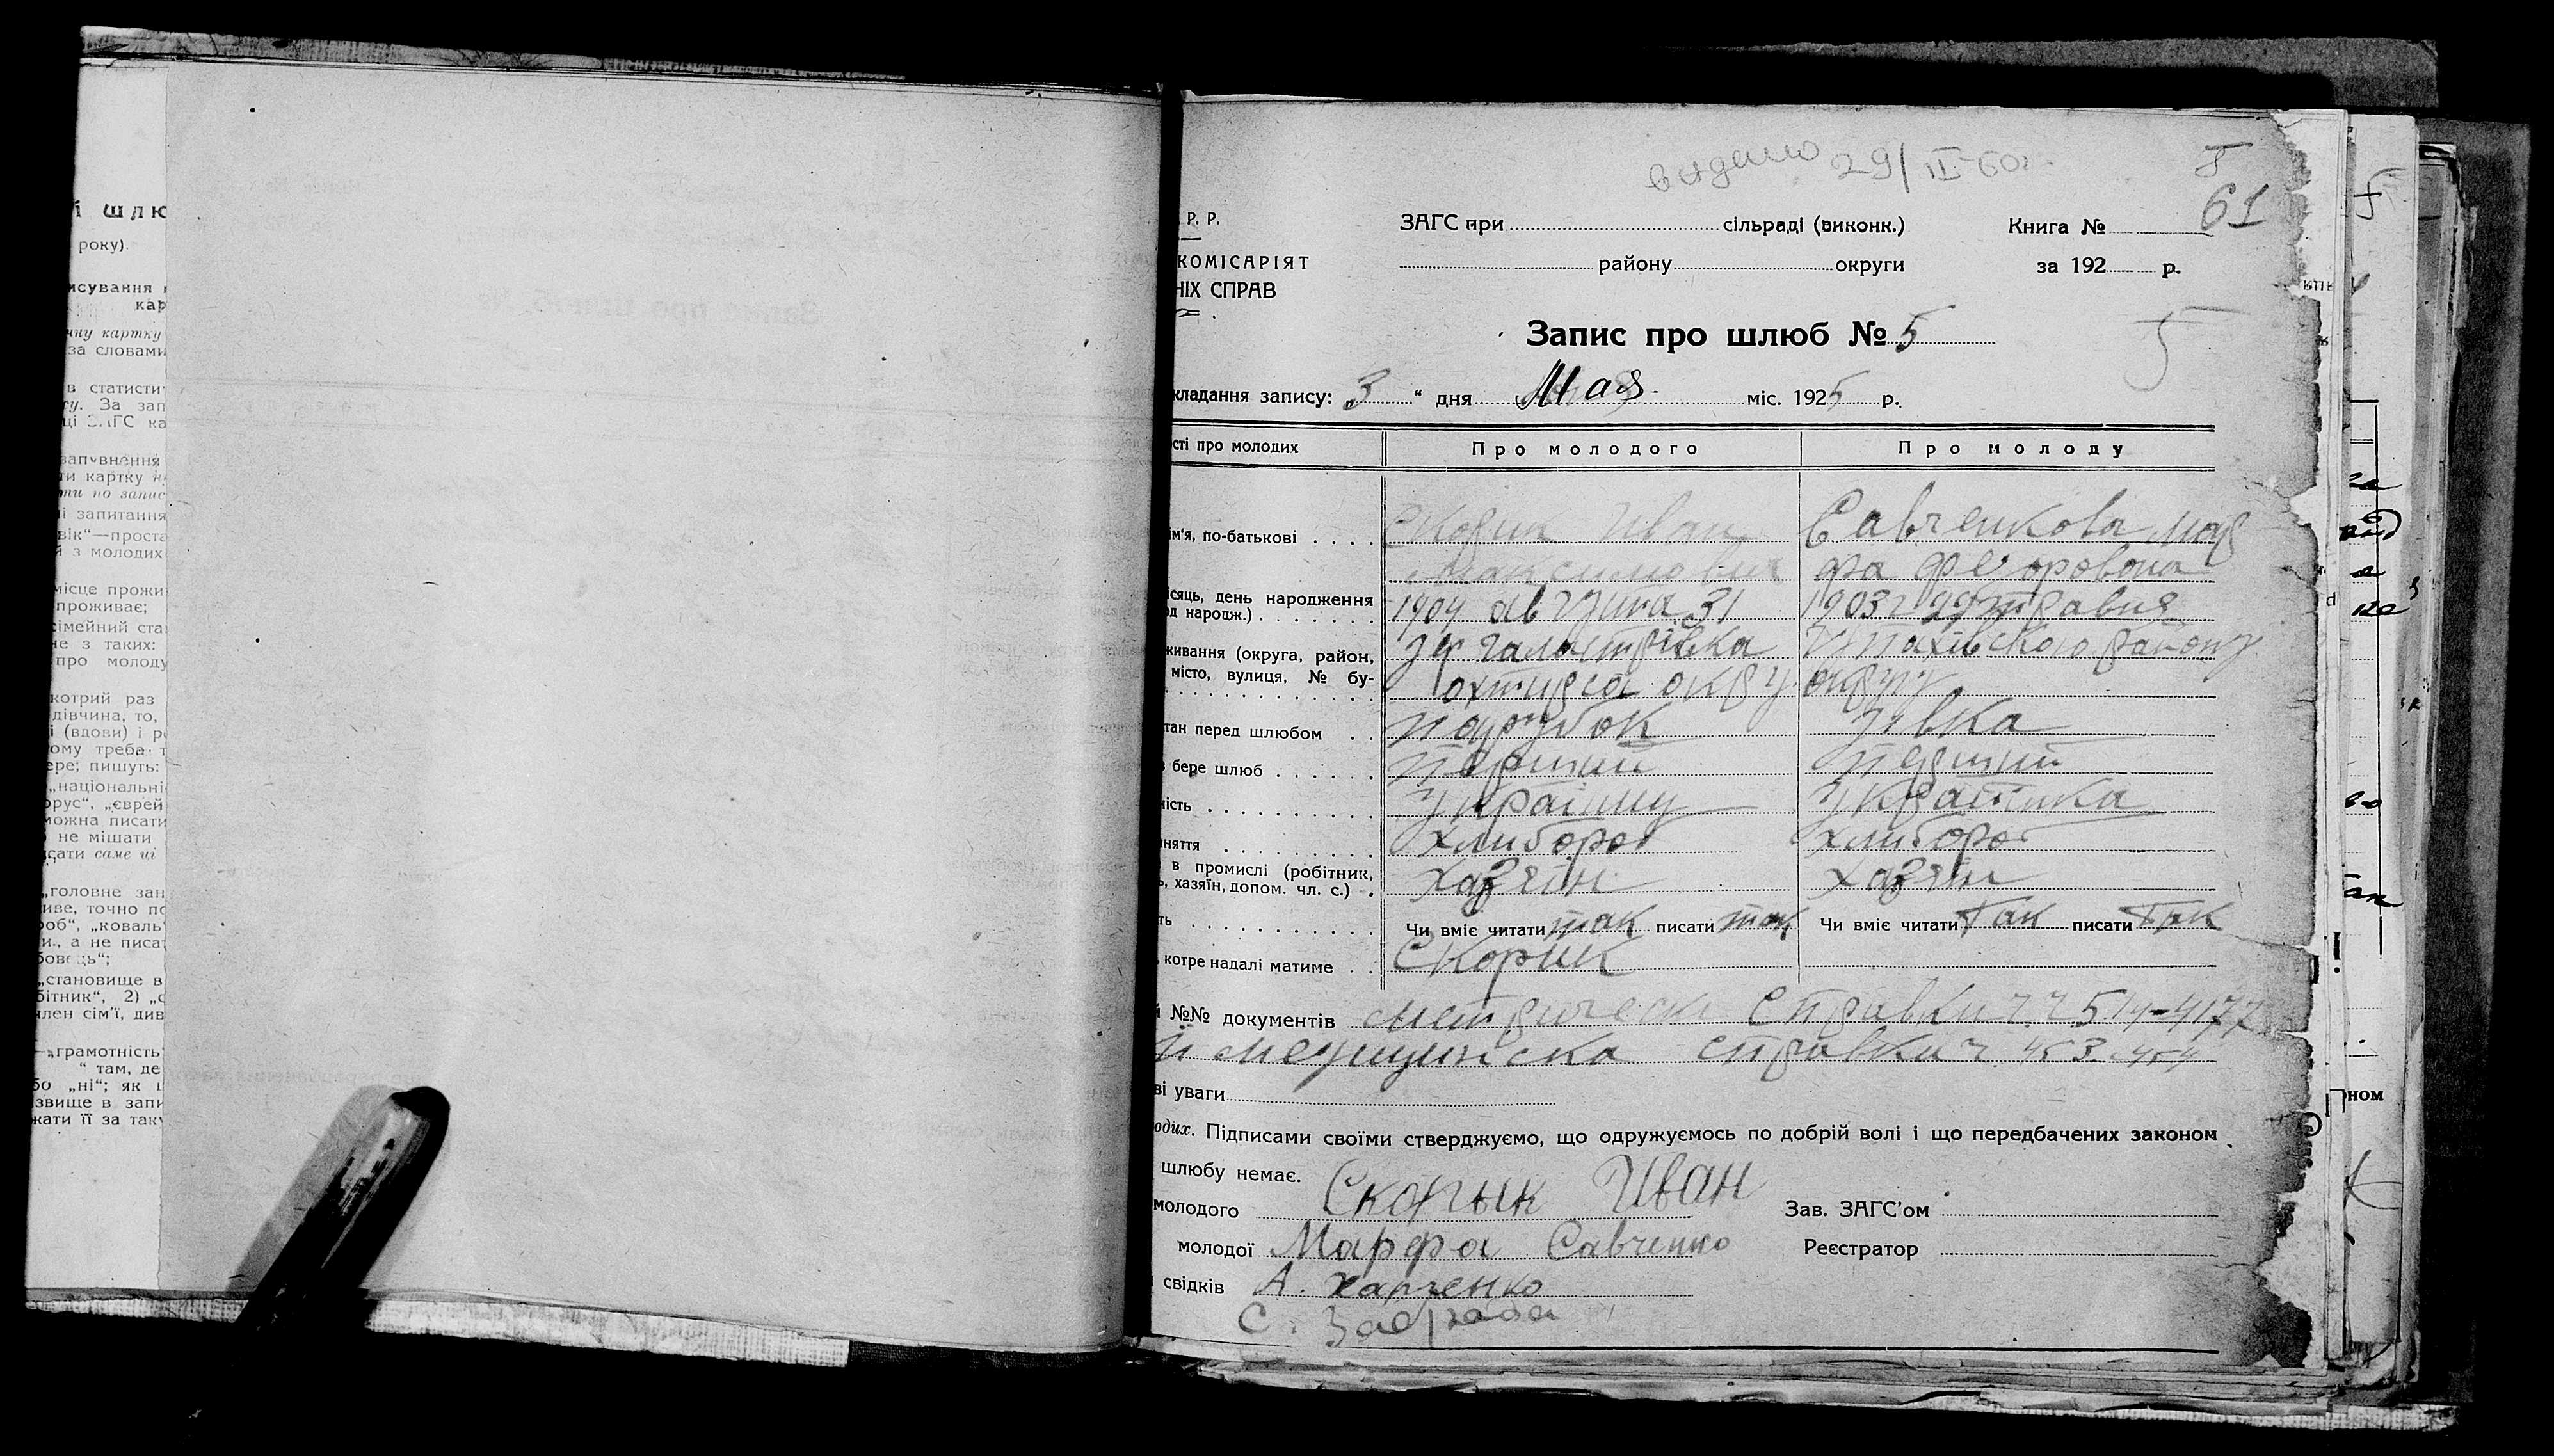 і шлю
року).
исування
кар
чну картку
за словами
в статисти
су. За зап
ці ЗАГС ка
заповнення
ти картку
ти по запис
і запитання
вік"—проста
й з молодих
місце прожи
проживає;
сімейний ста
не з таких:
про молоду
котрий раз
дівчина, то,
і (вдови) і р
ому треба т
ере; пишуть:
„національні
орус", „єврей
можна писати
не мішати
сати саме ці
„головне зан
иве, точно по
роб", „коваль
и., а не писа
бовець";
„становище в
бітник", 2) „
член сім'ї, див
„грамотність"
" там, де
бо „ні"; як
звище в запи
жати її за так
видано 29/II-60г.
61
Р. Р. ЗАГС при сільраді (виконк.) Книга №
КОМІСАРІЯТ району округи за 192 р.
НІХ СПРАВ
Запис про шлюб № 5
5
кладання запису: „3 “ дня Мая міс. 1925 р.
сті про молодих Про молодого Про молоду
ім'я, по-батькові Скорик Иван Савченкова Мар
Максимович фа Федоровона
ісяць, день народження 1904 августа 31 1903 г 29 травня
од народж.)
живання (округа, район, галастрівка району
місто, вулиця, № бу- охтирса округ округу
тан перед шлюбом парубок дівка
бере шлюб перший перший
ність Українц Українка
няття хлибороб хлибороб
в промислі (робітник,
ь, хазяїн, допом. чл. с.) хазяїн хазяїн
ть Чи вміє читати так писати так Чи вміє читати так писати так
, котре надалі матиме Скорик
й №№ документів метрически справки 514-4177
и медицинска справка ч 453. 454
ві уваги
одих. Підписами своїми стверджуємо, що одружуємось по добрій волі і що передбачених законом
шлюбу немає.
молодого Скорык Иван Зав. ЗАГС'ом
молодої Марфа Савченко Реєстратор
свідків А. Харченко
С.
ном